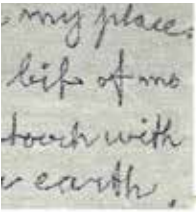 my place.
bit of me
touch with
earth.